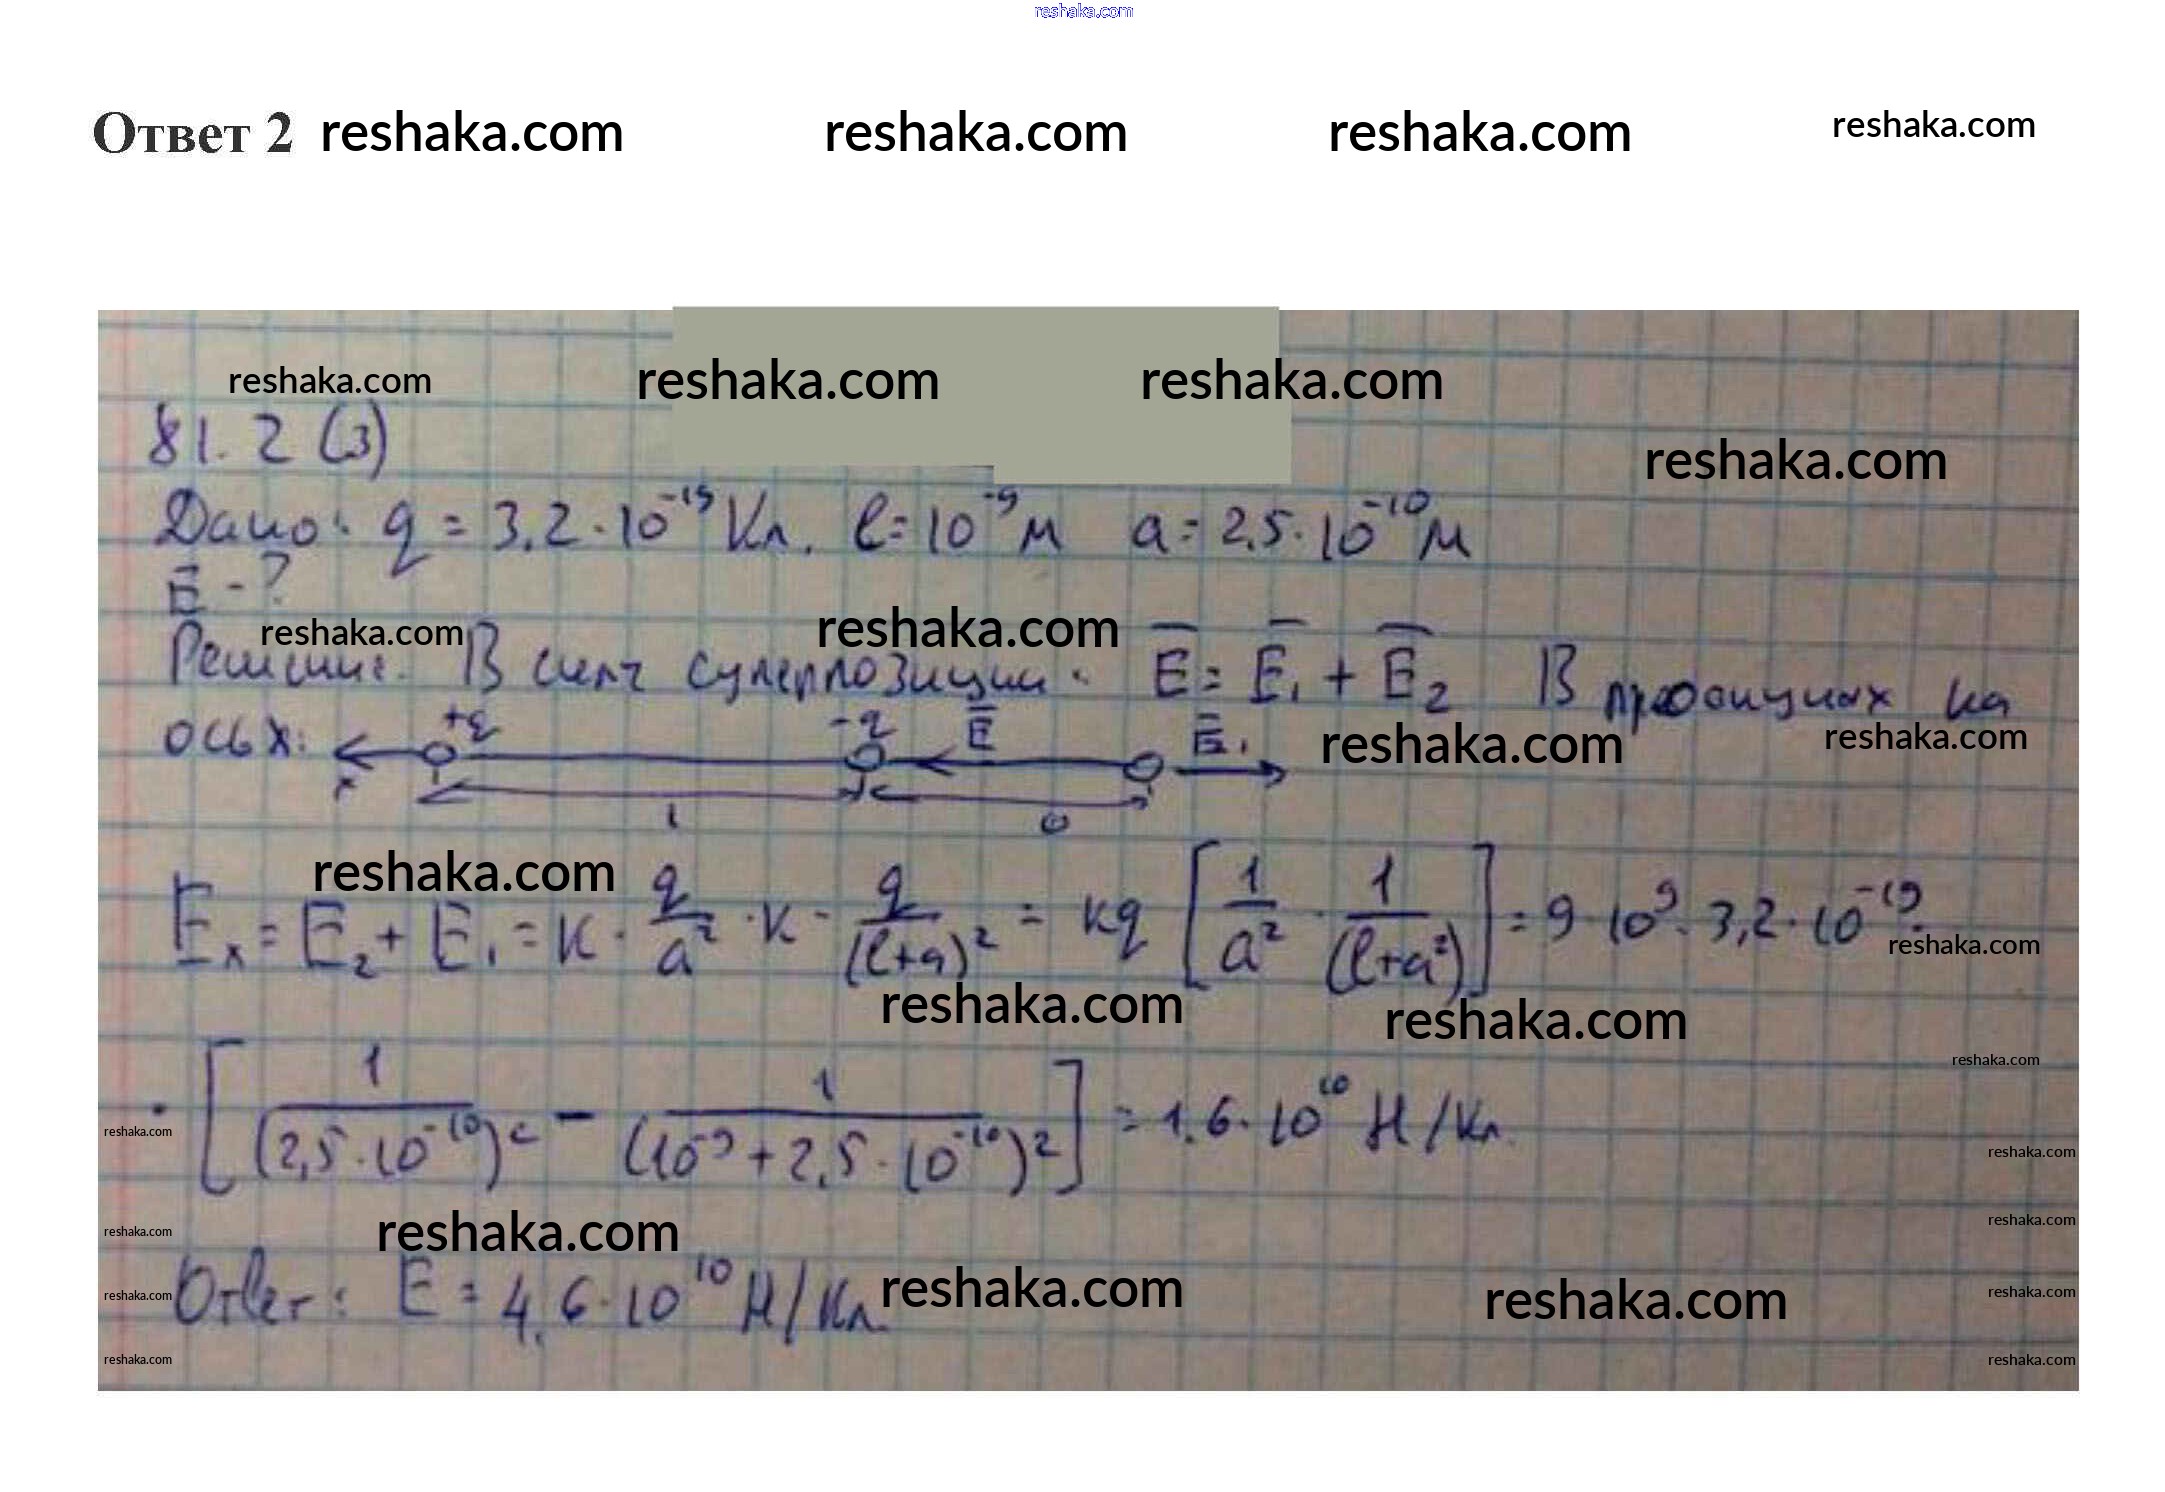 reshaka.com
Ответ 2 reshaka.com reshaka.com reshaka.com reshaka.com
reshaka.com reshaka.com reshaka.com
81.2 (3)
reshaka.com
Дано: q = 3,2·10⁻¹⁹ Кл. l = 10⁻⁹ м a = 2,5·10⁻¹⁰ м
E - ?
reshaka.com reshaka.com
Решение: В силу суперпозиции: E = E₁ + E₂ В проекциях на
ось x: +q -q E E₁ reshaka.com reshaka.com
x l a
reshaka.com
Eₓ = E₂ + E₁ = K · q/a² · K - q/(l+a)² = kq [1/a² · 1/(l+a²)] = 9·10⁹·3,2·10⁻¹⁹·
reshaka.com
reshaka.com reshaka.com
reshaka.com
· [1/(2,5·10⁻¹⁰)² − 1/(10⁻⁹+2,5·10⁻¹⁰)²] = 1,6·10¹⁰ Н/Кл.
reshaka.com reshaka.com
reshaka.com reshaka.com reshaka.com
Ответ: E = 4,6·10¹⁰ Н/Кл.
reshaka.com reshaka.com reshaka.com reshaka.com
reshaka.com reshaka.com